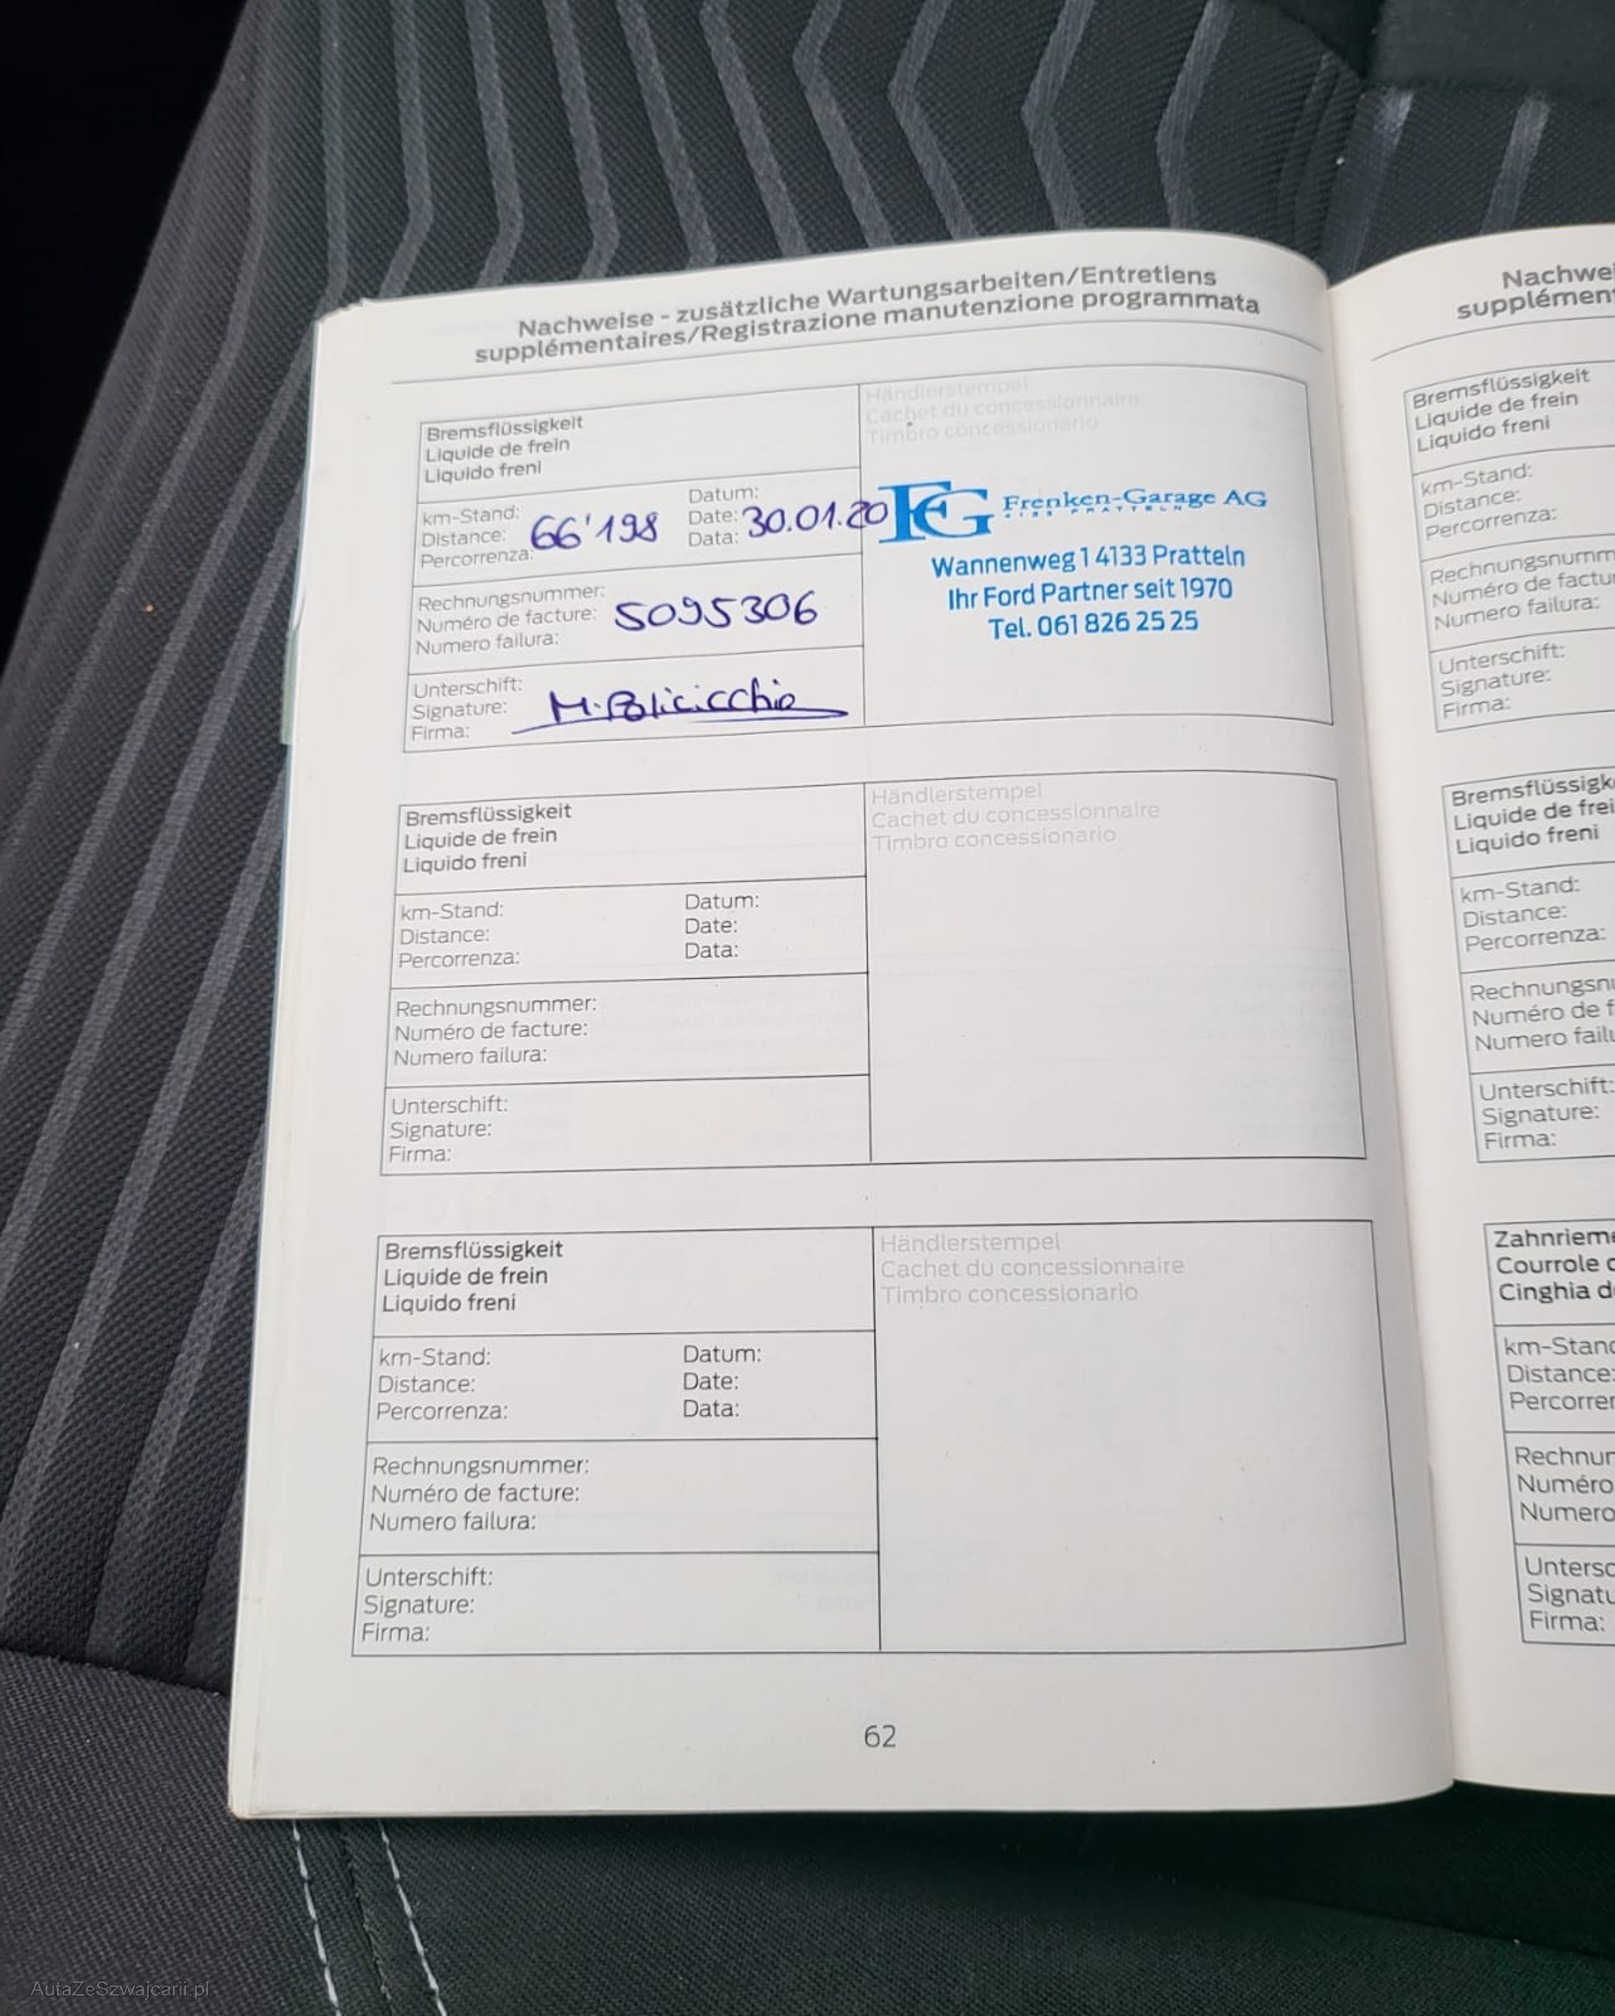 Nachweise - zusätzliche Wartungsarbeiten/Entretiens
supplémentaires/Registrazione manutenzione programmata
Bremsflüssigkeit
Liquide de frein
Liquido freni
Händlerstempel
Cachet du concessionnaire
Timbro concessionario
km-Stand:
Distance: 66'198
Percorrenza:
Datum:
Date: 30.01.20
Data:
FG Frenken-Garage AG
Wannenweg 1 4133 Pratteln
Ihr Ford Partner seit 1970
Tel. 061 826 25 25
Rechnungsnummer:
Numéro de facture: 5095306
Numero failura:
Unterschift:
Signature: M. Policicchio
Firma:
Bremsflüssigkeit
Liquide de frein
Liquido freni
Händlerstempel
Cachet du concessionnaire
Timbro concessionario
km-Stand:
Distance:
Percorrenza:
Datum:
Date:
Data:
Rechnungsnummer:
Numéro de facture:
Numero failura:
Unterschift:
Signature:
Firma:
Bremsflüssigkeit
Liquide de frein
Liquido freni
Händlerstempel
Cachet du concessionnaire
Timbro concessionario
km-Stand:
Distance:
Percorrenza:
Datum:
Date:
Data:
Rechnungsnummer:
Numéro de facture:
Numero failura:
Unterschift:
Signature:
Firma:
62
Nachwei
supplément
Bremsflüssigkeit
Liquide de frein
Liquido freni
km-Stand:
Distance:
Percorrenza:
Rechnungsnumm
Numéro de factu
Numero failura:
Unterschift:
Signature:
Firma:
Bremsflüssigk
Liquide de frei
Liquido freni
km-Stand:
Distance:
Percorrenza:
Rechnungsnu
Numéro de f
Numero failu
Unterschift:
Signature:
Firma:
Zahnrieme
Courrole d
Cinghia d
km-Stand
Distance:
Percorrer
Rechnun
Numéro
Numero
Untersc
Signatu
Firma:
AutaZeSzwajcarii.pl